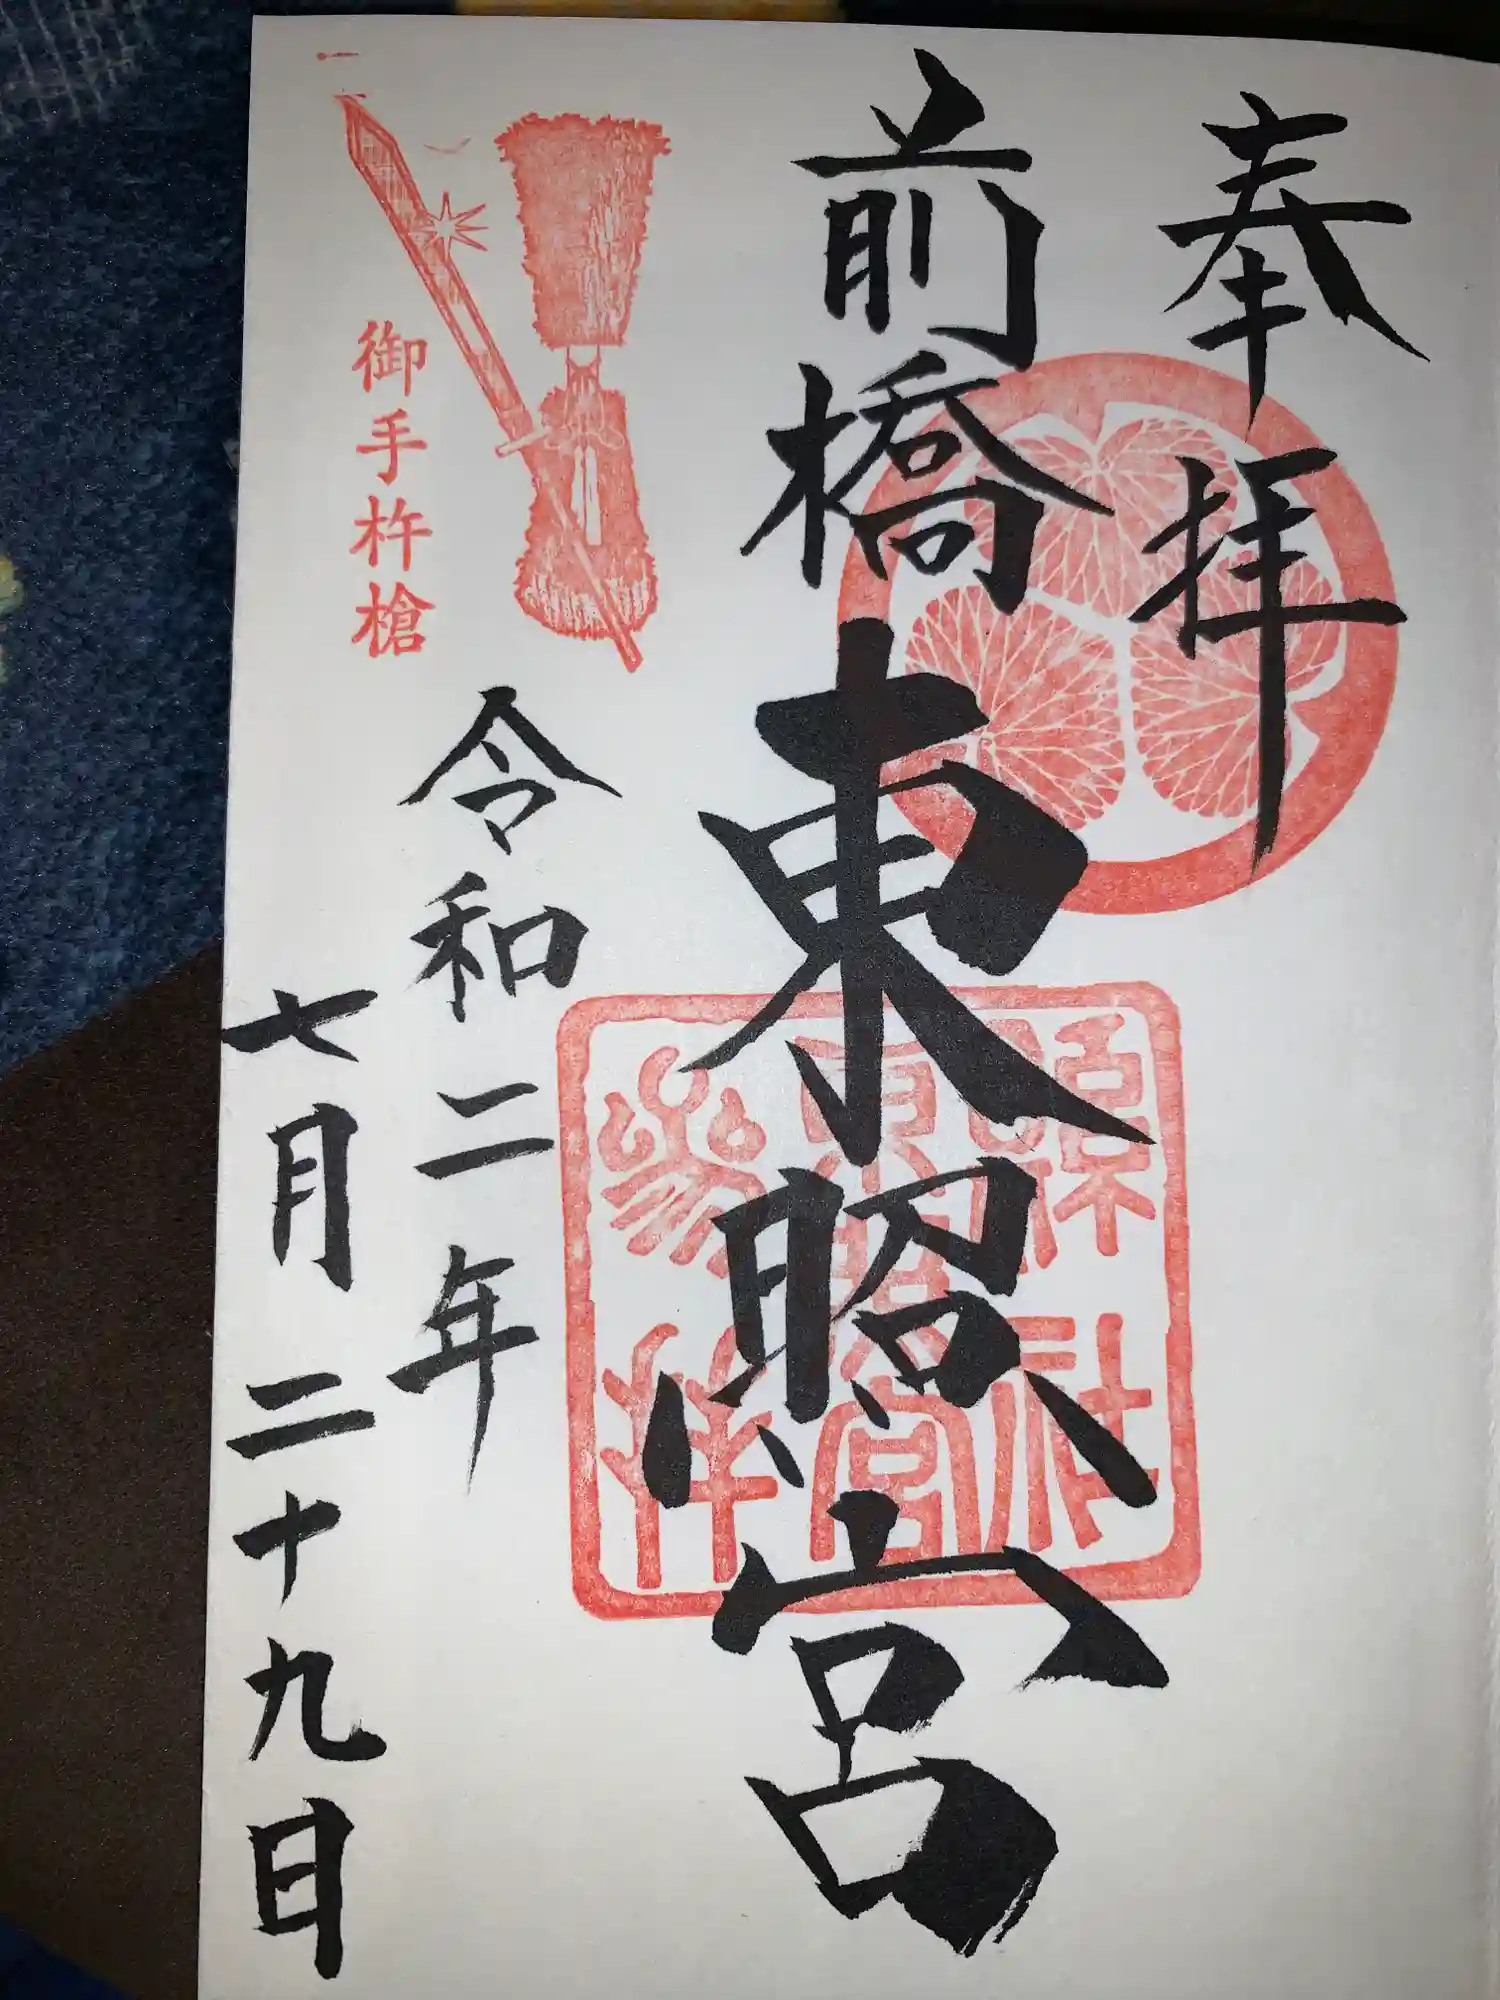 奉拝
前橋東照宮
令和二年
七月二十九日
御手杵槍
縣社
東照宮
参拝